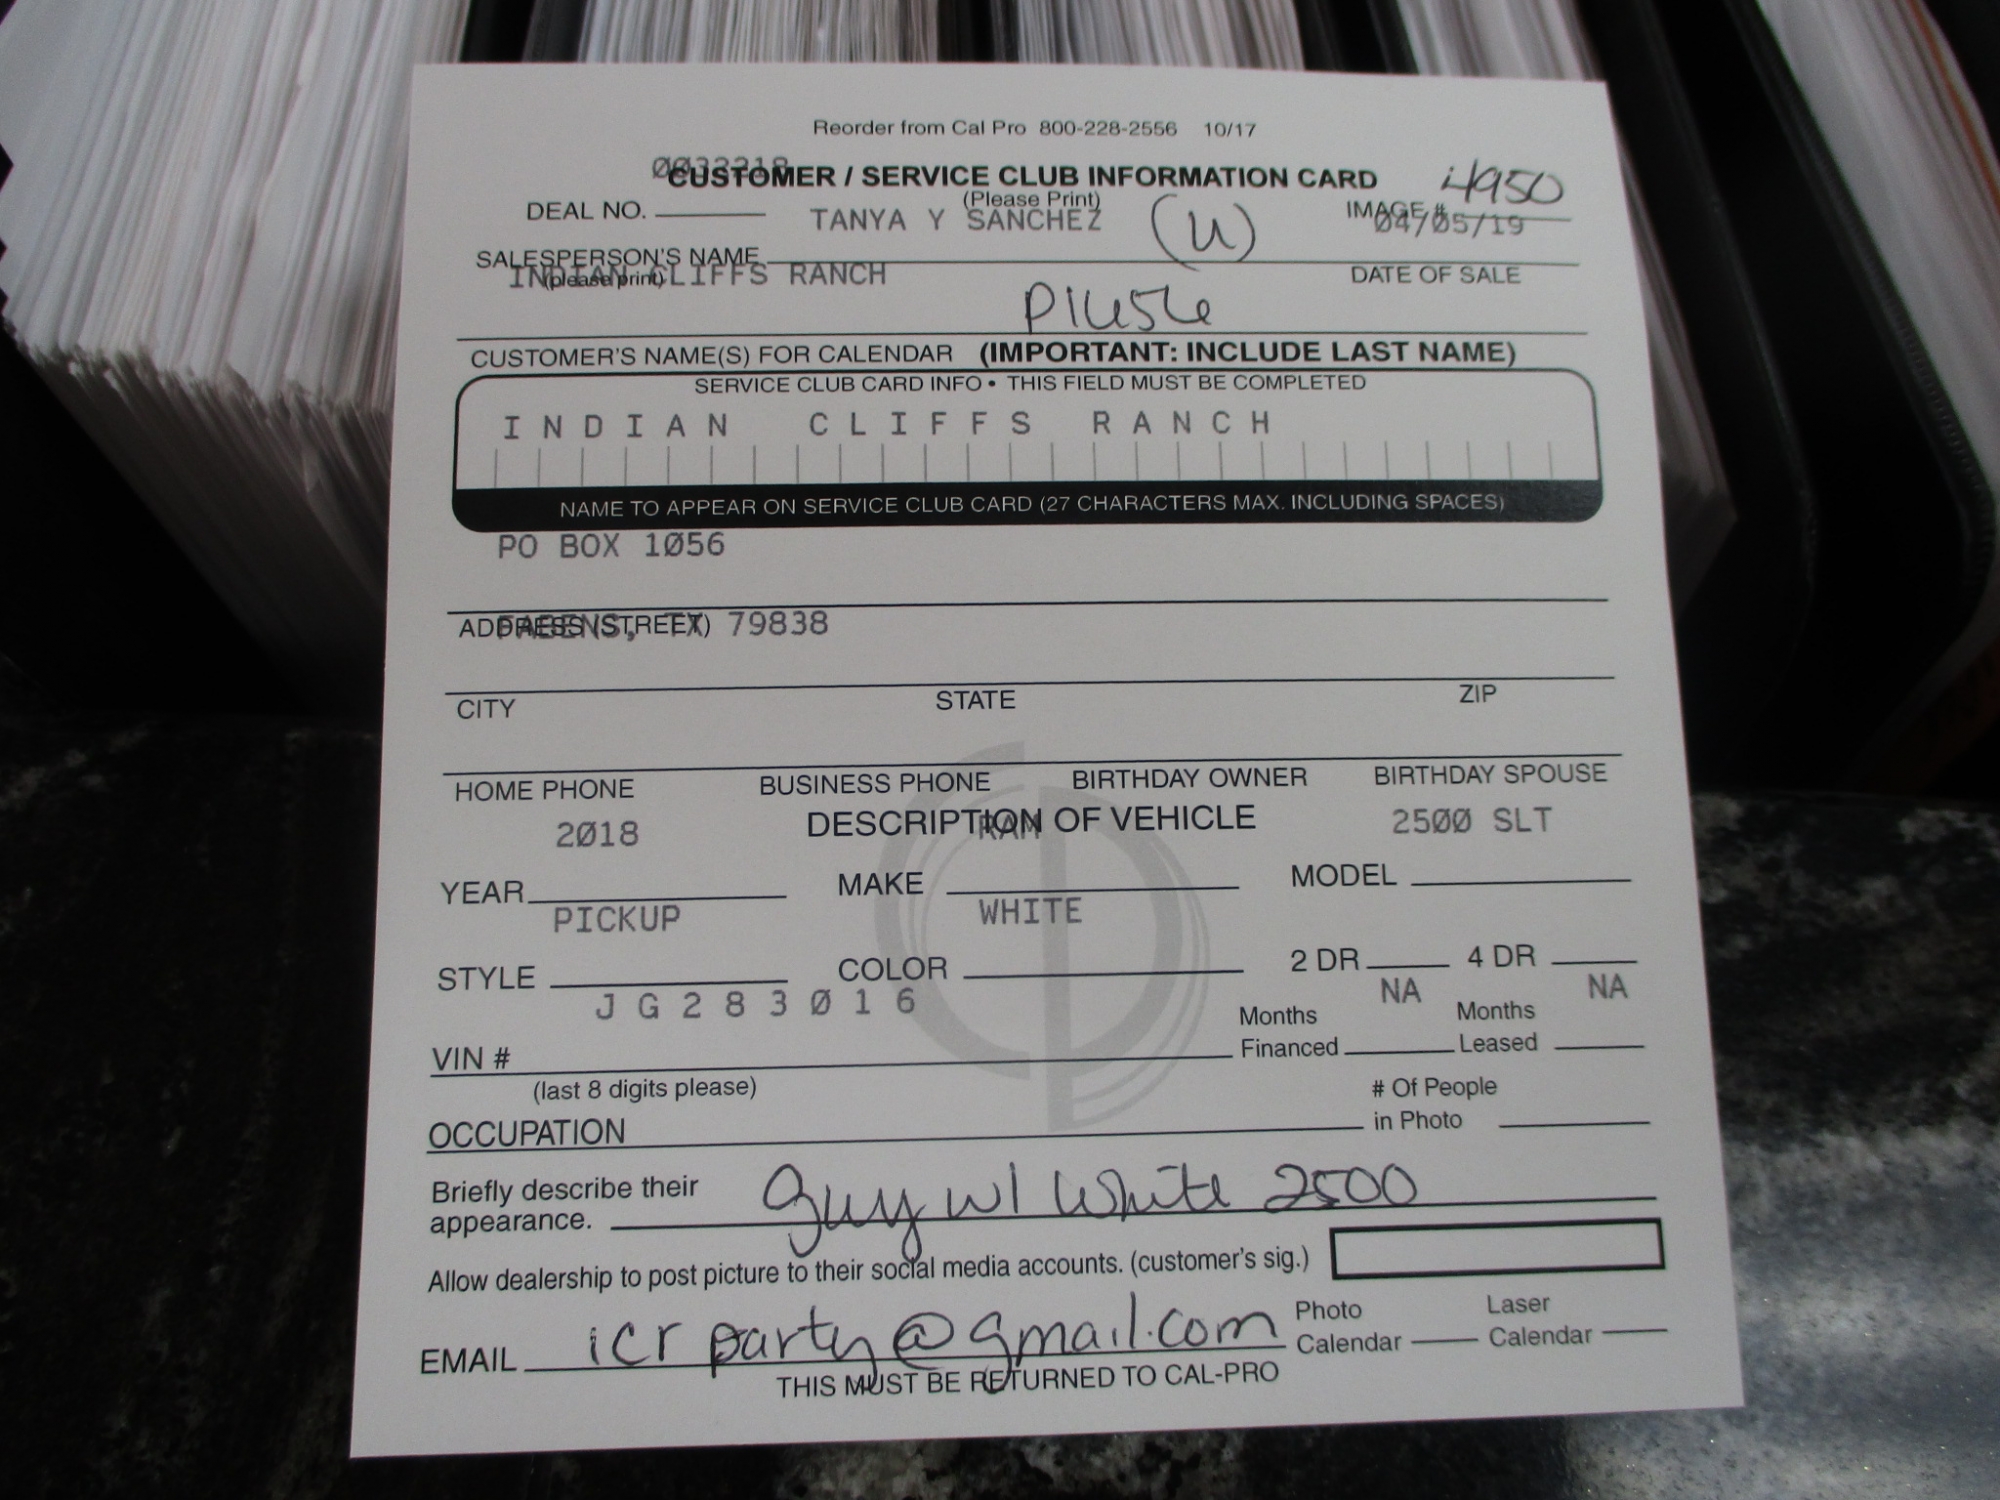 Reorder from Cal Pro 800-228-2556 10/17
CUSTOMER / SERVICE CLUB INFORMATION CARD
4950
(Please Print)
DEAL NO. TANYA Y SANCHEZ (U) IMAGE # 04/05/19
SALESPERSON'S NAME
(please print) INDIAN CLIFFS RANCH DATE OF SALE
CUSTOMER'S NAME(S) FOR CALENDAR (IMPORTANT: INCLUDE LAST NAME)
SERVICE CLUB CARD INFO • THIS FIELD MUST BE COMPLETED
INDIAN CLIFFS RANCH
NAME TO APPEAR ON SERVICE CLUB CARD (27 CHARACTERS MAX. INCLUDING SPACES)
PO BOX 1056
ADDRESS (STREET) FABENS, TX 79838
CITY STATE ZIP
HOME PHONE BUSINESS PHONE BIRTHDAY OWNER BIRTHDAY SPOUSE
DESCRIPTION OF VEHICLE
2018 RAM 2500 SLT
YEAR MAKE MODEL
PICKUP WHITE
STYLE COLOR 2 DR 4 DR
JG283016 NA NA
VIN # Months Financed Months Leased
(last 8 digits please)
OCCUPATION # Of People in Photo
Briefly describe their appearance. Guy w/ White 2500
Allow dealership to post picture to their social media accounts. (customer's sig.)
EMAIL icrparty@gmail.com Photo Calendar Laser Calendar
THIS MUST BE RETURNED TO CAL-PRO